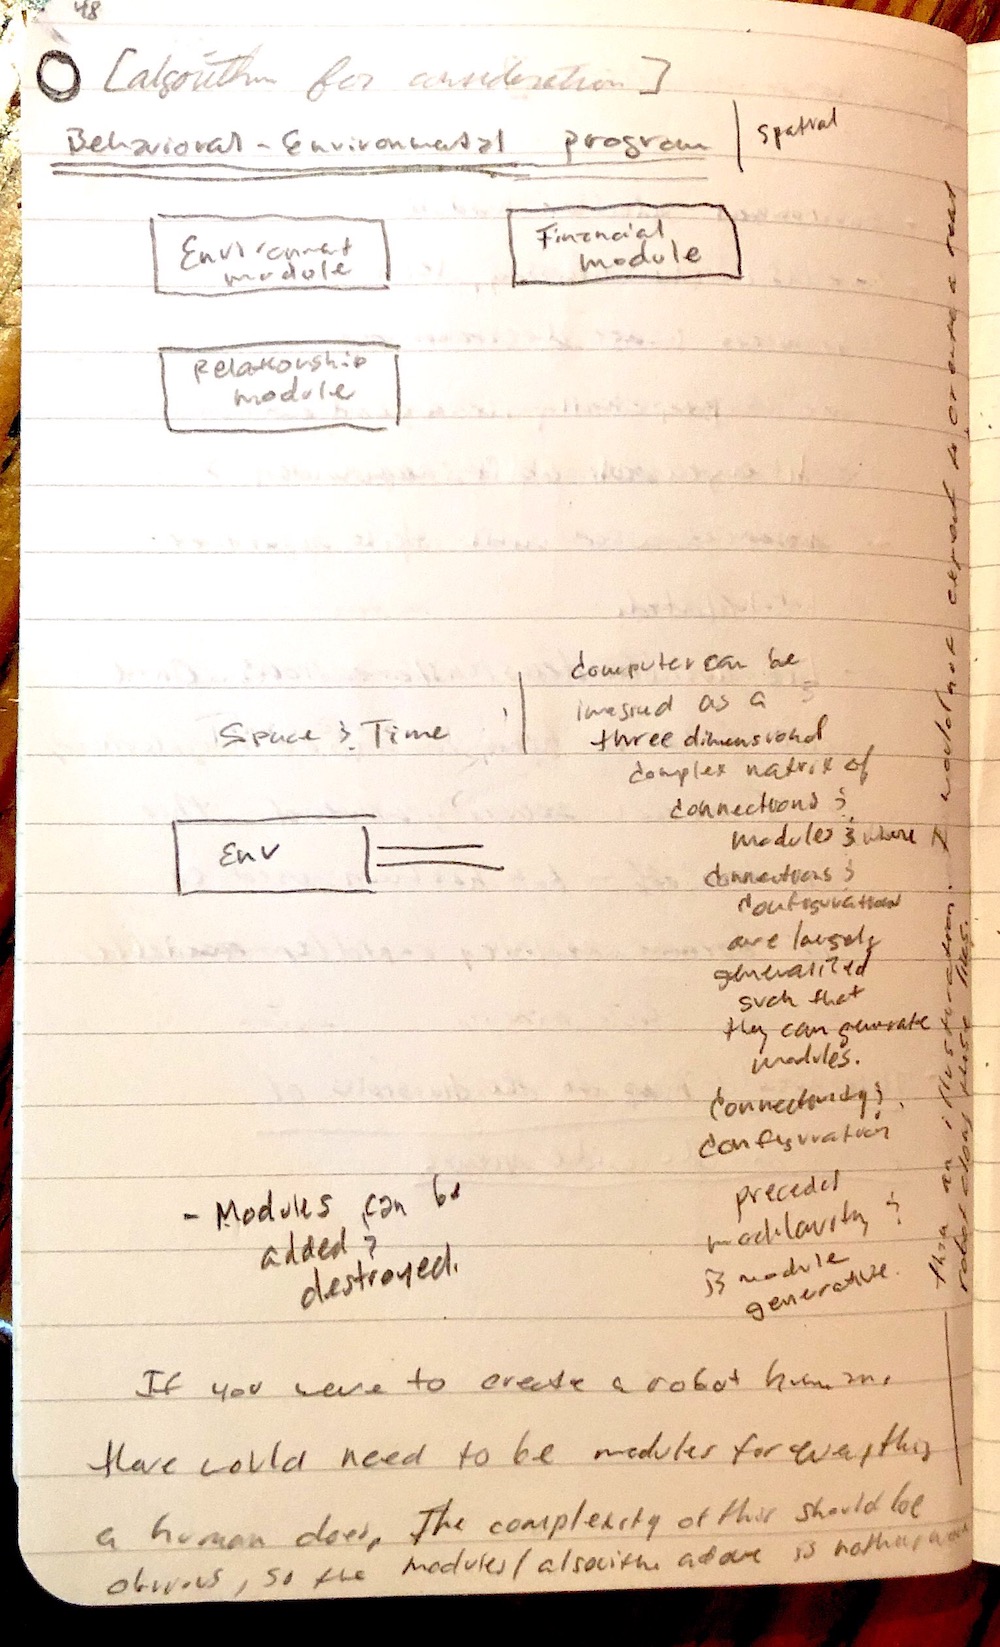 48
[algorithm for consideration]
Behavioral - Environmental program | spatial
Environment
module
Financial
module
Relationship
module
Space & Time
computer can be
imagined as a
three dimensional
complex matrix of
connections &
modules & where
connections &
configuration
are largely
generalized
such that
they can generate
modules.
Connectivity &
configuration
precedes
modularity &
is module
generative.
Env
- Modules can be
added &
destroyed.
If you were to create a robot human,
there would need to be modules for everything
a human does. The complexity of this should be
obvious, so the modules/algorithm above is nothing more
than an illustration. I would not expect to create a real
robot along these lines.